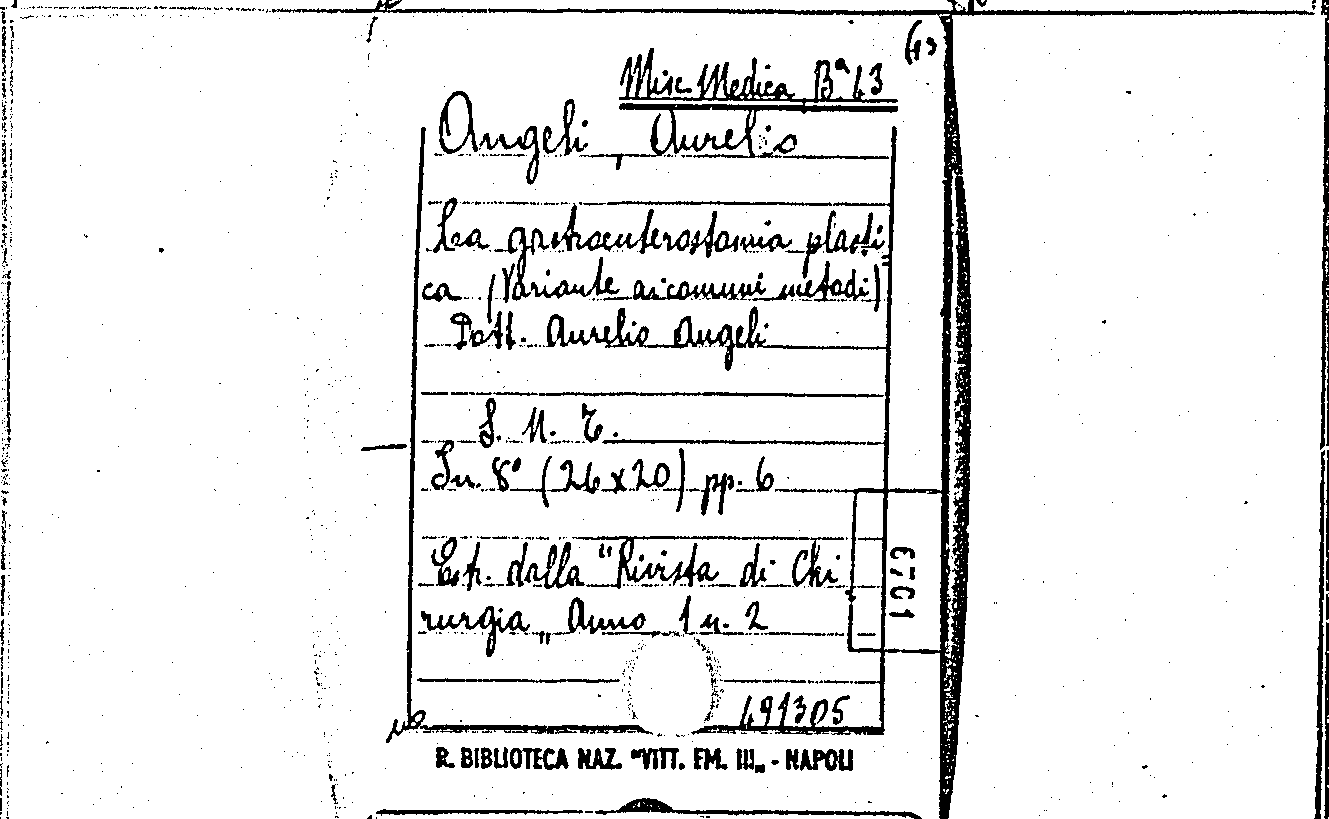 (13
Misc. Medica Bª 43
Angeli, Aurelio
La gastroenterostomia plasti
ca (Variante ai comuni metodi)
Dott. Aurelio Angeli
S. N. T.
In 8° (26 x 20) pp. 6
Estr. dalla "Rivista di Chi
rurgia„ Anno 1 n. 2
6701
491305
R. BIBLIOTECA NAZ. "VITT. EM. III„ - NAPOLI